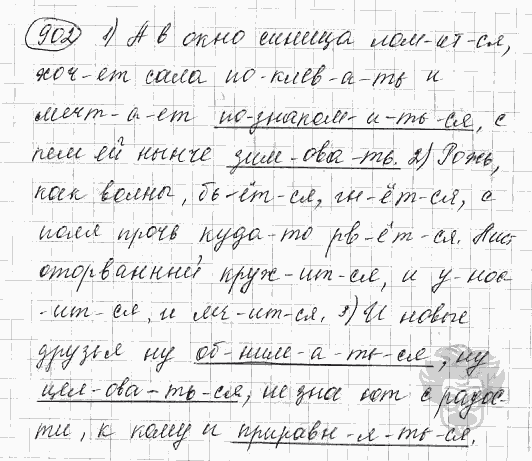 902 1) А в окно синица лом-ит-ся,
хоч-ет сала по-клев-а-ть и
мечт-а-ет по-знаком-и-ть-ся, с
кем ей нынче зим-ова-ть. 2) Рожь,
как волны, бь-ёт-ся, гн-ёт-ся, с
поля прочь куда-то рв-ёт-ся. Лист
оторванный круж-ит-ся, и у-нос-
-ит-ся, и мч-ит-ся. 3) И новые
друзья ну об-ним-а-ть-ся, ну
цел-ова-ть-ся, не зна ют с радос-
ти, к кому и приравн-я-ть-ся.